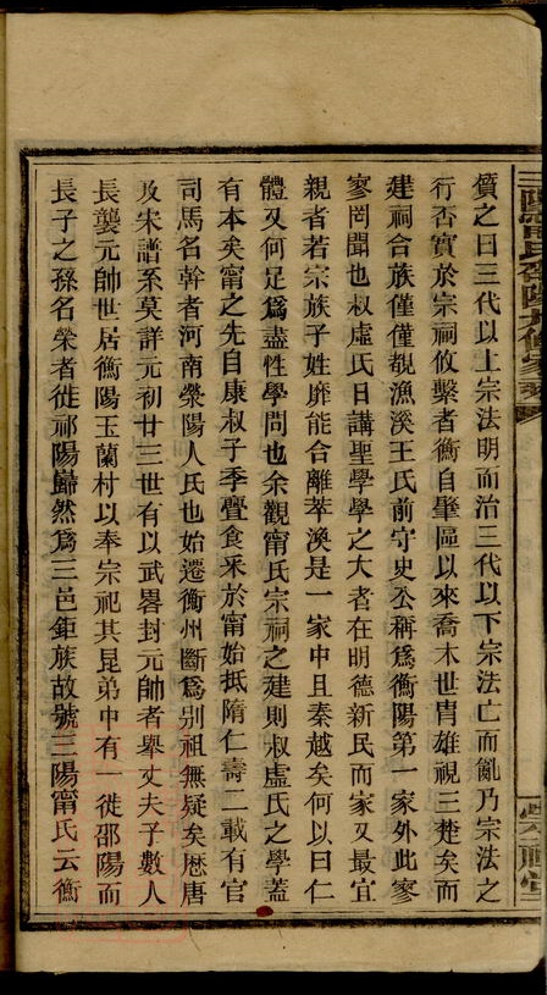 三陽甯氏邵陽九修家乘
質之曰三代以上宗法明而治三代以下宗法亡而亂乃宗法之
行否實於宗祠攸繫者衡自肇區以來喬木世胄雄視三楚矣而
建祠合族僅僅覩漁溪王氏前守史公稱爲衡陽第一家外此寥
寥罔聞也叔虛氏日講聖學學之大者在明德新民而家又最宜
親者若宗族子姓靡能合離萃渙是一家中且秦越矣何以曰仁
體又何足爲盡性學問也余觀甯氏宗祠之建則叔虛氏之學蓋
有本矣甯之先自康叔子季亹食采於甯始抵隋仁壽二載有官
司馬名幹者河南滎陽人氏也始遷衡州斷爲别祖無疑矣歷唐
及宋譜系莫詳元初廿三世有以武畧封元帥者舉丈夫子數人
長襲元帥世居衡陽玉蘭村以奉宗祀其昆弟中有一徙邵陽而
長子之孫名榮者徙祁陽巋然爲三邑鉅族故號三陽甯氏云衡